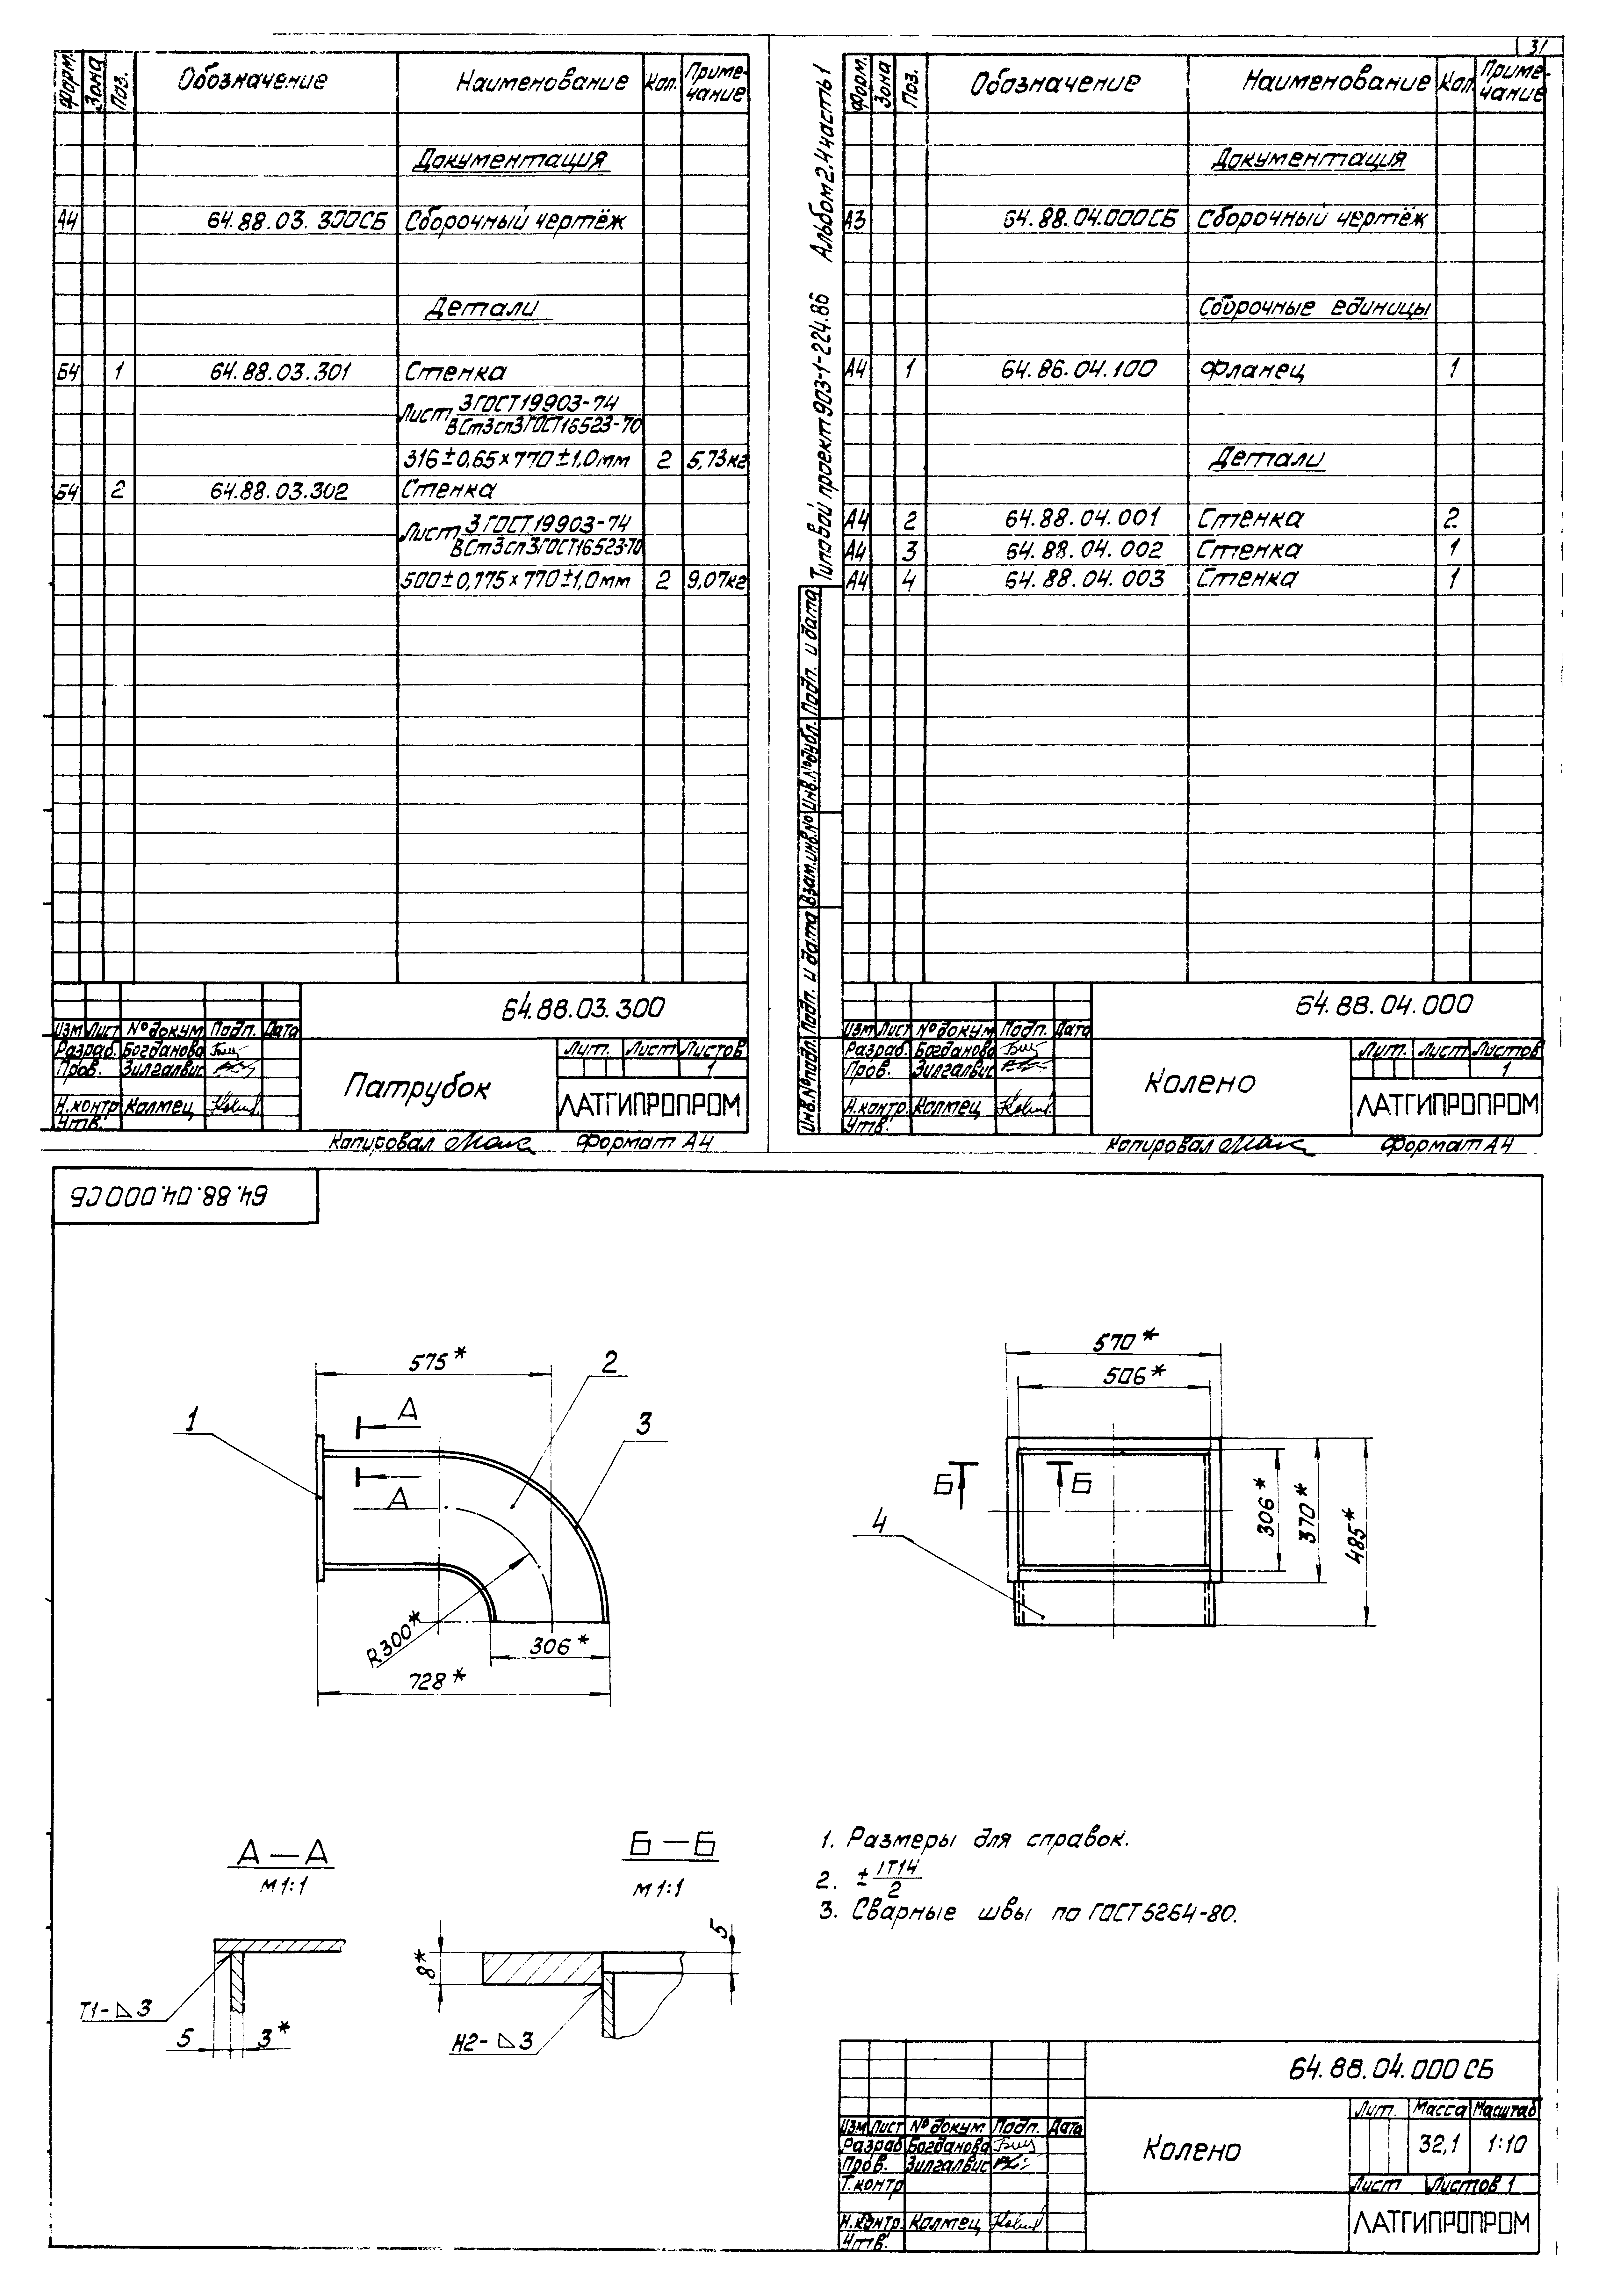 31
Форм. Зона Поз. Обозначение Наименование Кол. Приме-
чание
Документация
А4 64.88.03.300СБ Сборочный чертёж
Детали
Б4 1 64.88.03.301 Стенка
Лист 3 ГОСТ 19903-74
ВСт3сп3ГОСТ16523-70
316±0,65×770±1,0мм 2 5,73кг
Б4 2 64.88.03.302 Стенка
Лист 3 ГОСТ 19903-74
ВСт3сп3ГОСТ16523-70
500±0,775×770±1,0мм 2 9,07кг
64.88.03.300
Изм Лист № докум Подп. Дата
Разраб. Богданова
Пров. Зилгалвис
Н.контр Калтец
Утв.
Патрубок
Лит. Лист Листов
1
ЛАТГИПРОПРОМ
Копировал Формат А4
Типовой проект 903-1-224.86 Альбом 2.4 часть 1
Инв.№подл. Подп. и дата Взам.инв.№ Инв.№дубл. Подп. и дата
Форм. Зона Поз. Обозначение Наименование Кол. Приме-
чание
Документация
А3 64.88.04.000СБ Сборочный чертёж
Сборочные единицы
А4 1 64.86.04.100 Фланец 1
Детали
А4 2 64.88.04.001 Стенка 2
А4 3 64.88.04.002 Стенка 1
А4 4 64.88.04.003 Стенка 1
64.88.04.000
Изм Лист № докум Подп. Дата
Разраб. Богданова
Пров. Зилгалвис
Н.контр. Калтец
Утв.
Колено
Лит. Лист Листов
1
ЛАТГИПРОПРОМ
Копировал Формат А4
64.88.04.000СБ
575*
1
2
3
А
А
R300*
306*
728*
570*
506*
Б
Б
4
306*
370*
485*
А—А
М1:1
Т1-◺3
5 3*
Б—Б
М1:1
8*
5
Н2-◺3
1. Размеры для справок.
2. ± IT14
2
3. Сварные швы по ГОСТ 5264-80.
64.88.04.000 СБ
Изм Лист № докум. Подп. Дата
Разраб Богданова
Пров. Зилгалвис
Т.контр
Н.контр. Калтец
Утв.
Колено
Лит. Масса Масштаб
32,1 1:10
Лист Листов 1
ЛАТГИПРОПРОМ